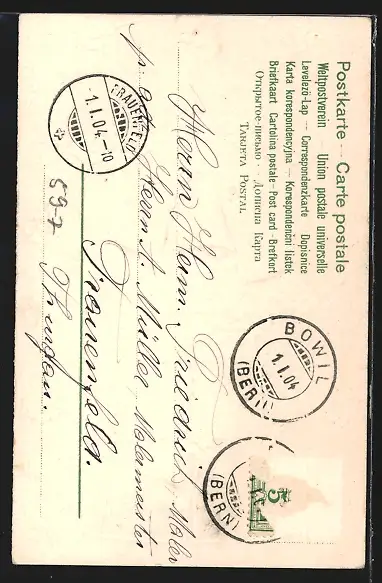 Postkarte — Carte postale
Weltpostverein — Union postale universelle
Levelező-Lap — Correspondenzkarte — Dopisnice
Karta korespondencyjna — Korespondenční lístek
Briefkaart · Cartolina postale · Post card · Brefkort
Открытое письмо · Дописна Карта
Tarjeta Postal
BOWIL
1.I.04
(BERN)
5
(BERN)
FRAUENFELD
1.I.04.-10
Herrn Herm. Friedrich, Maler
p. ad. Herrn A. Müller Malermeister
Frauenfeld.
Thurgau.
59-7